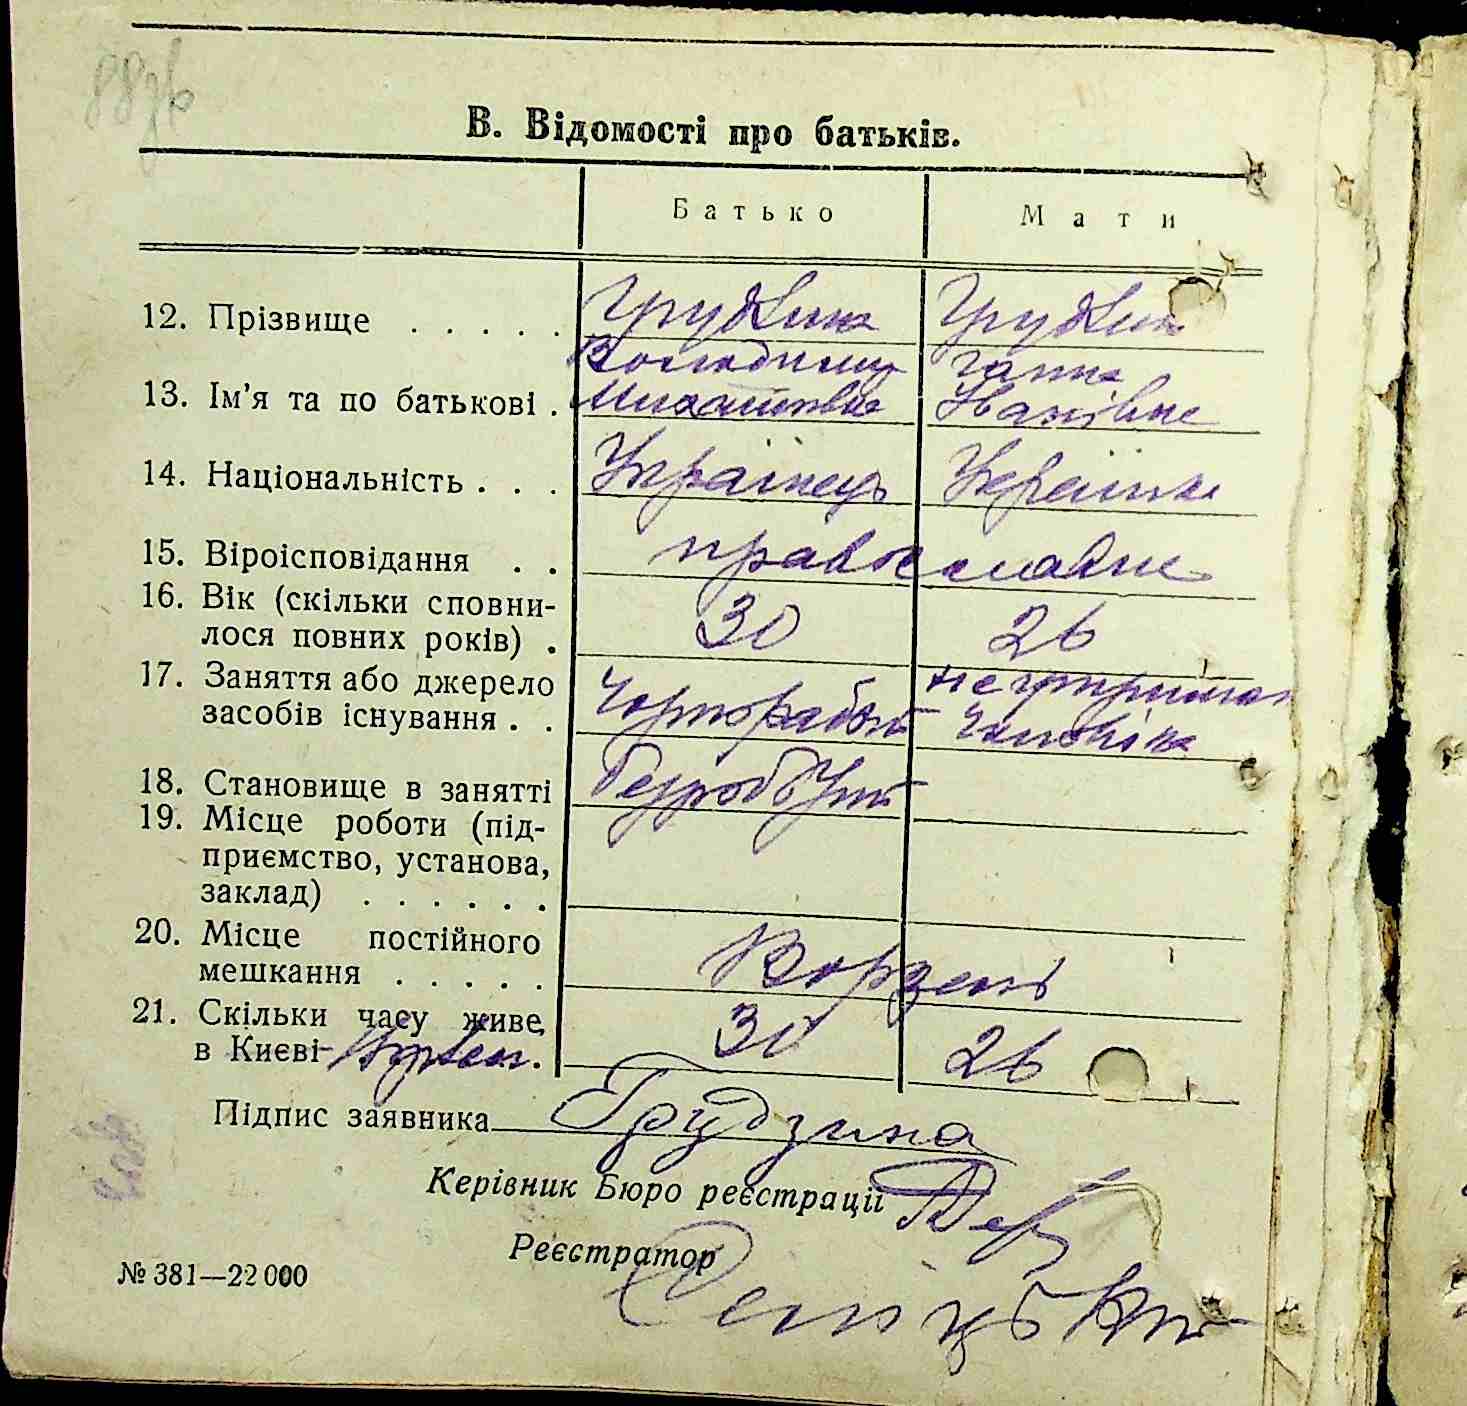 88зв
В. Відомості про батьків.
Батько Мати
12. Прізвище . . . . . Грудзина Грудзина
Володимир Ганна
13. Ім'я та по батькові . Михайлович Іванівна
14. Національність . . . Українець Українка
15. Віроісповідання . . православне
16. Вік (скільки сповни-
лося повних років) . 30 26
17. Заняття або джерело Чорнороб на утриман
засобів існування . . чоловіка
18. Становище в занятті безробітний
19. Місце роботи (під-
приємство, установа,
заклад) . . . . . .
20. Місце постійного
мешкання . . . . . Ворзель
21. Скільки часу живе
в Києві 30 26
Підпис заявника Грудзина
Керівник Бюро реєстрації
Реєстратор
№ 381—22 000